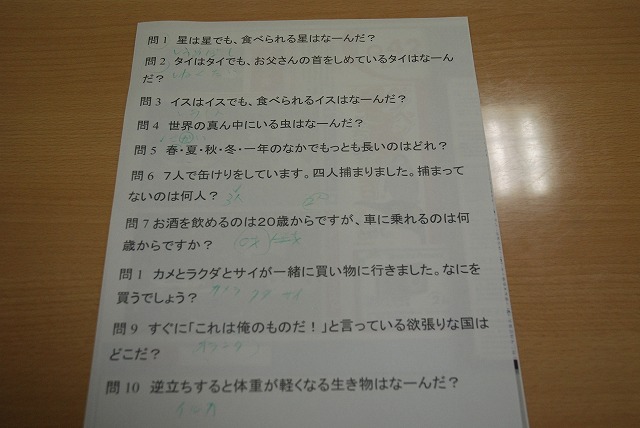 問1 星は星でも、食べられる星はなーんだ?
問2 タイはタイでも、お父さんの首をしめているタイはなーん
だ?
問3 イスはイスでも、食べられるイスはなーんだ?
問4 世界の真ん中にいる虫はなーんだ?
問5 春・夏・秋・冬・一年のなかでもっとも長いのはどれ?
問6 7人で缶けりをしています。四人捕まりました。捕まって
ないのは何人?
3人
問7 お酒を飲めるのは20歳からですが、車に乗れるのは何
歳からですか?
問1 カメとラクダとサイが一緒に買い物に行きました。なにを
買うでしょう?
問9 すぐに「これは俺のものだ!」と言っている欲張りな国は
どこだ?
オランダ
問10 逆立ちすると体重が軽くなる生き物はなーんだ?
イルカ